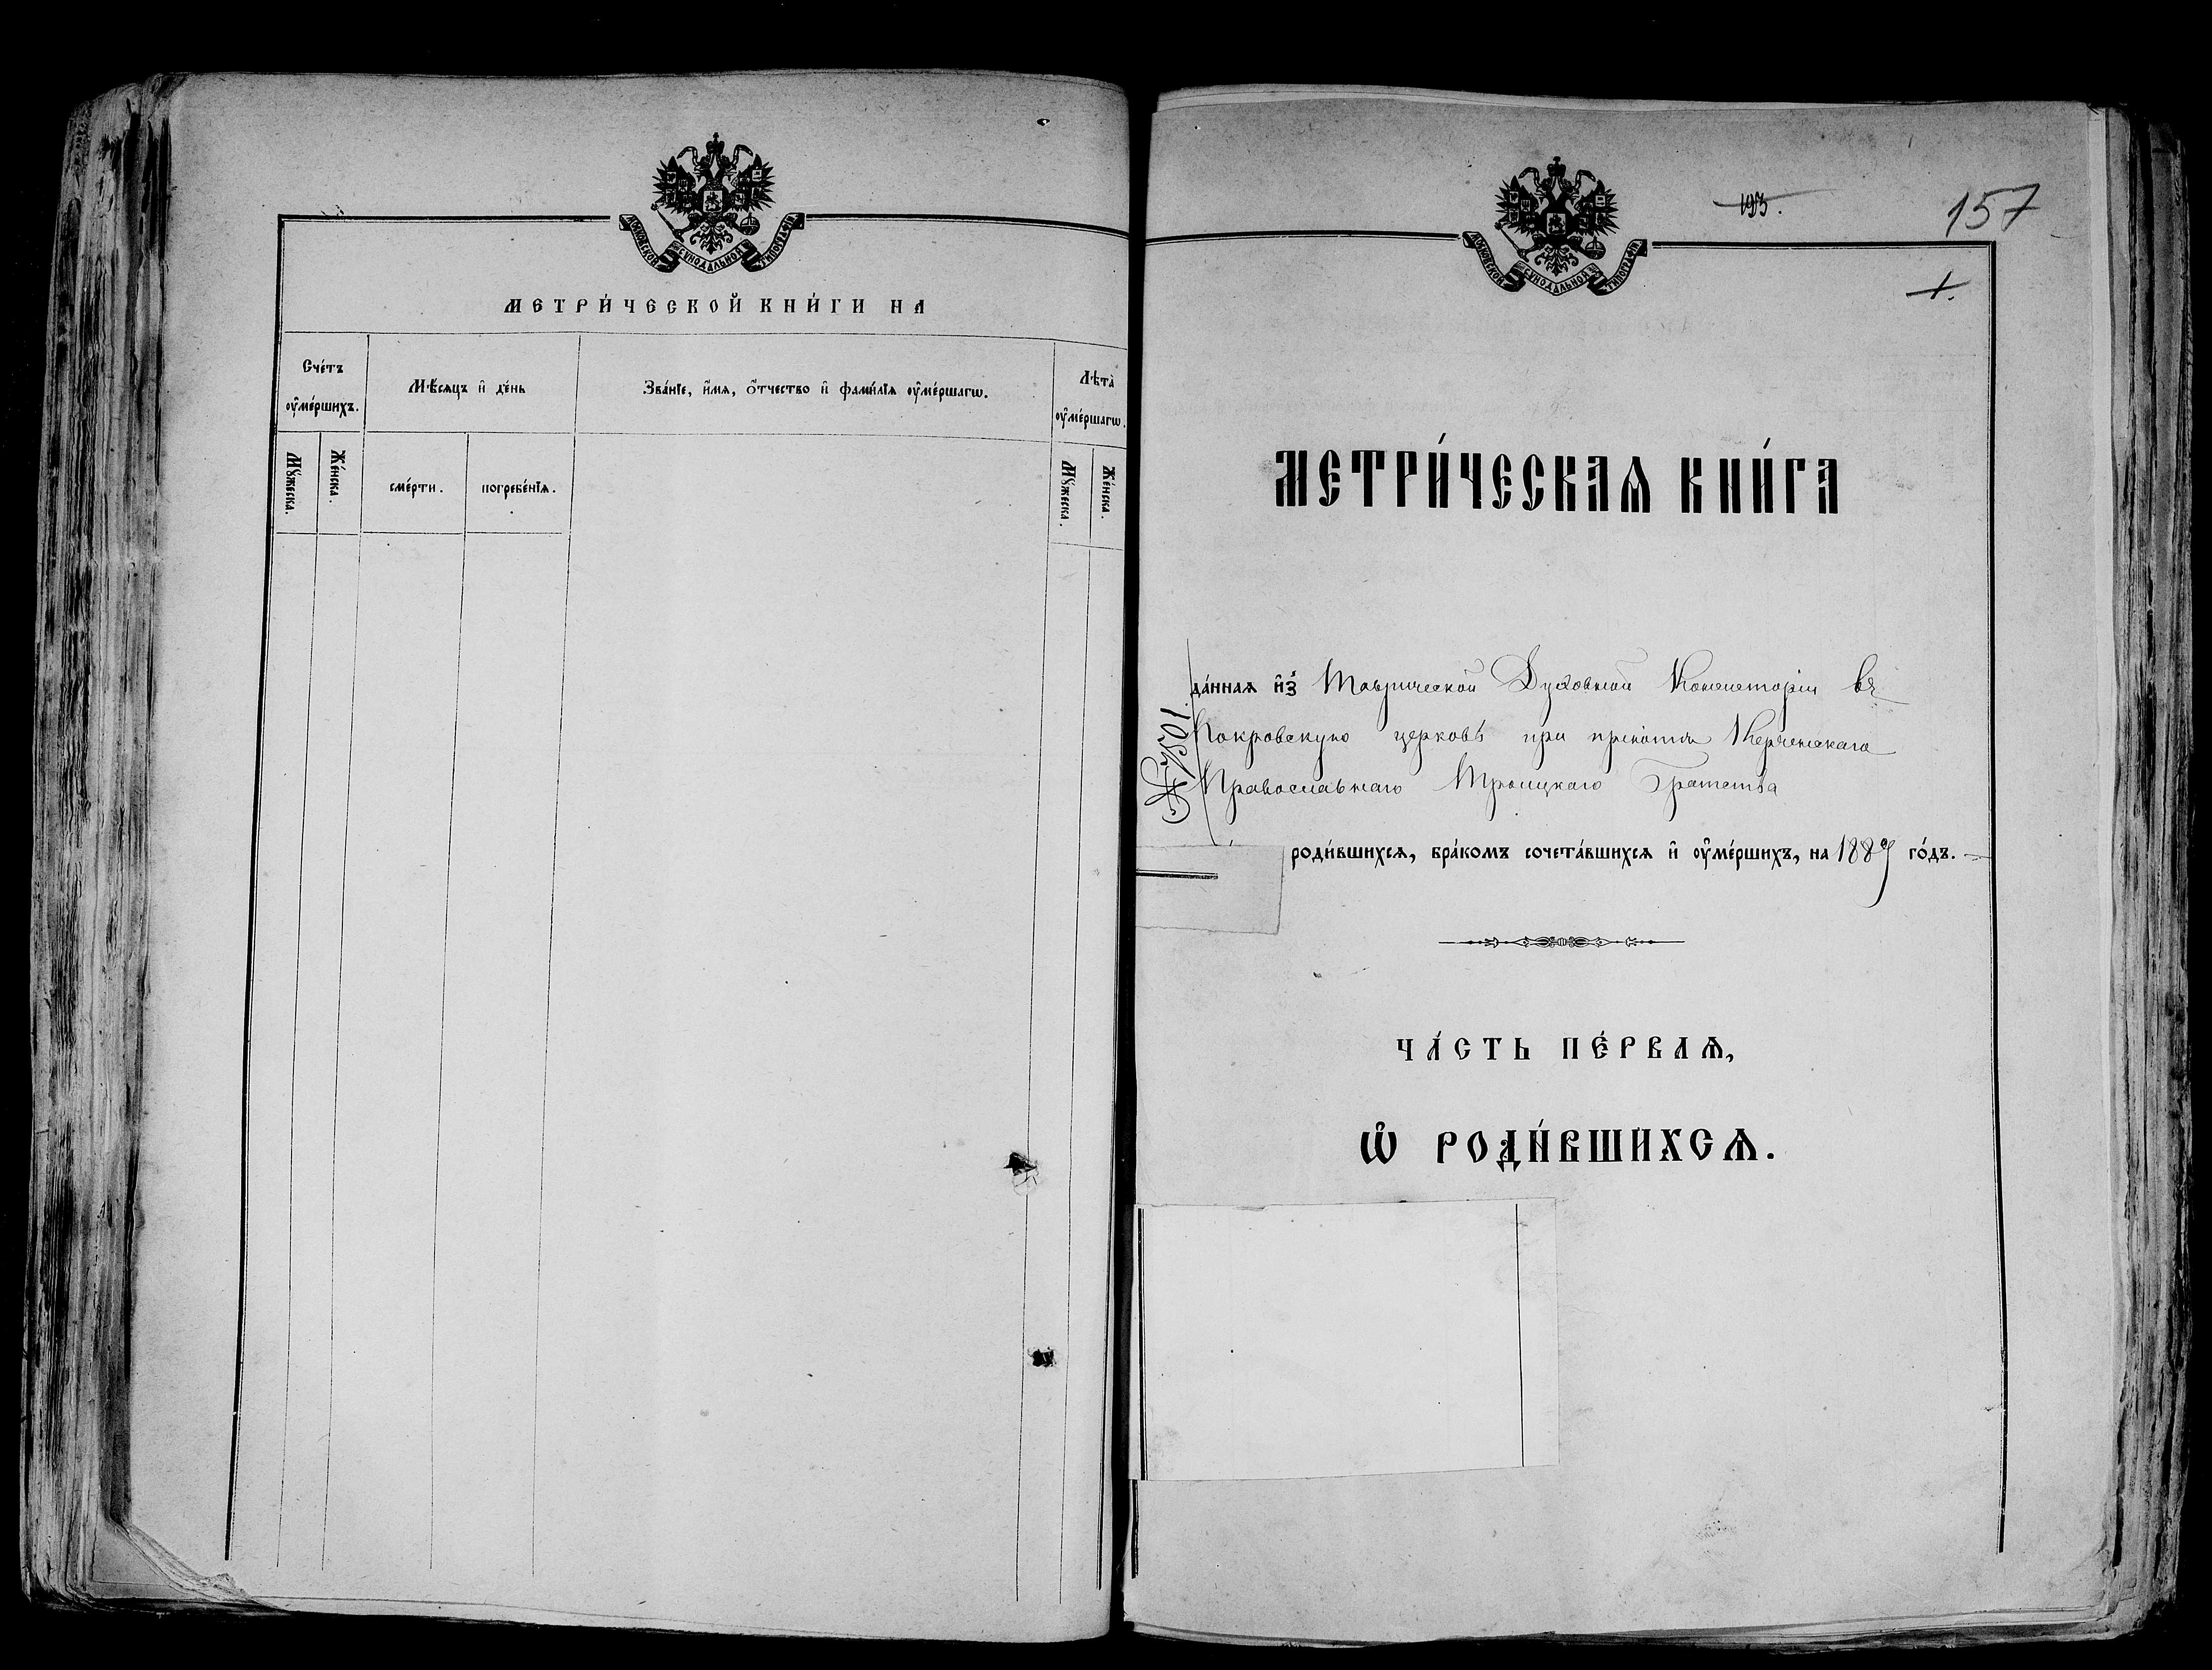 МОСКОВСКОЙ СѴНОДАЛЬНОЙ ТИПОГРАФІИ
МЕТРИ́ЧЕСКОЙ КНИ́ГИ НА
Сче́тъ ᲂу҆ме́ршихъ.
Мѣ́сяцъ и҆ де́нь
Зва́нїе, и҆́мя, ѻ҆́тчество и҆ фами́лїя ᲂу҆ме́ршагѡ.
Лѣта̀ ᲂу҆ме́ршагѡ.
Мꙋ́жеска.
Же́нска.
сме́рти.
погребе́нїѧ.
Мꙋ́жеска.
Же́нска.
МОСКОВСКОЙ СѴНОДАЛЬНОЙ ТИПОГРАФІИ
193.
157
1.
МЕТРИ́ЧЕСКАѦ КНИ́ГА
да́ннаѧ и҆з̾ Таврической Духовной Консисторіи въ
Покровскую церковь при пріютѣ Керченскаго
Православнаго Троицкаго Братства
№ 7501.
роди́вшихсѧ, бра́комъ сочета́вшихсѧ и҆ ᲂу҆ме́ршихъ, на 1889 го́дъ.
ЧА́СТЬ ПЕ́РВАѦ,
Ѡ҆ РОДИ́ВШИХСѦ.